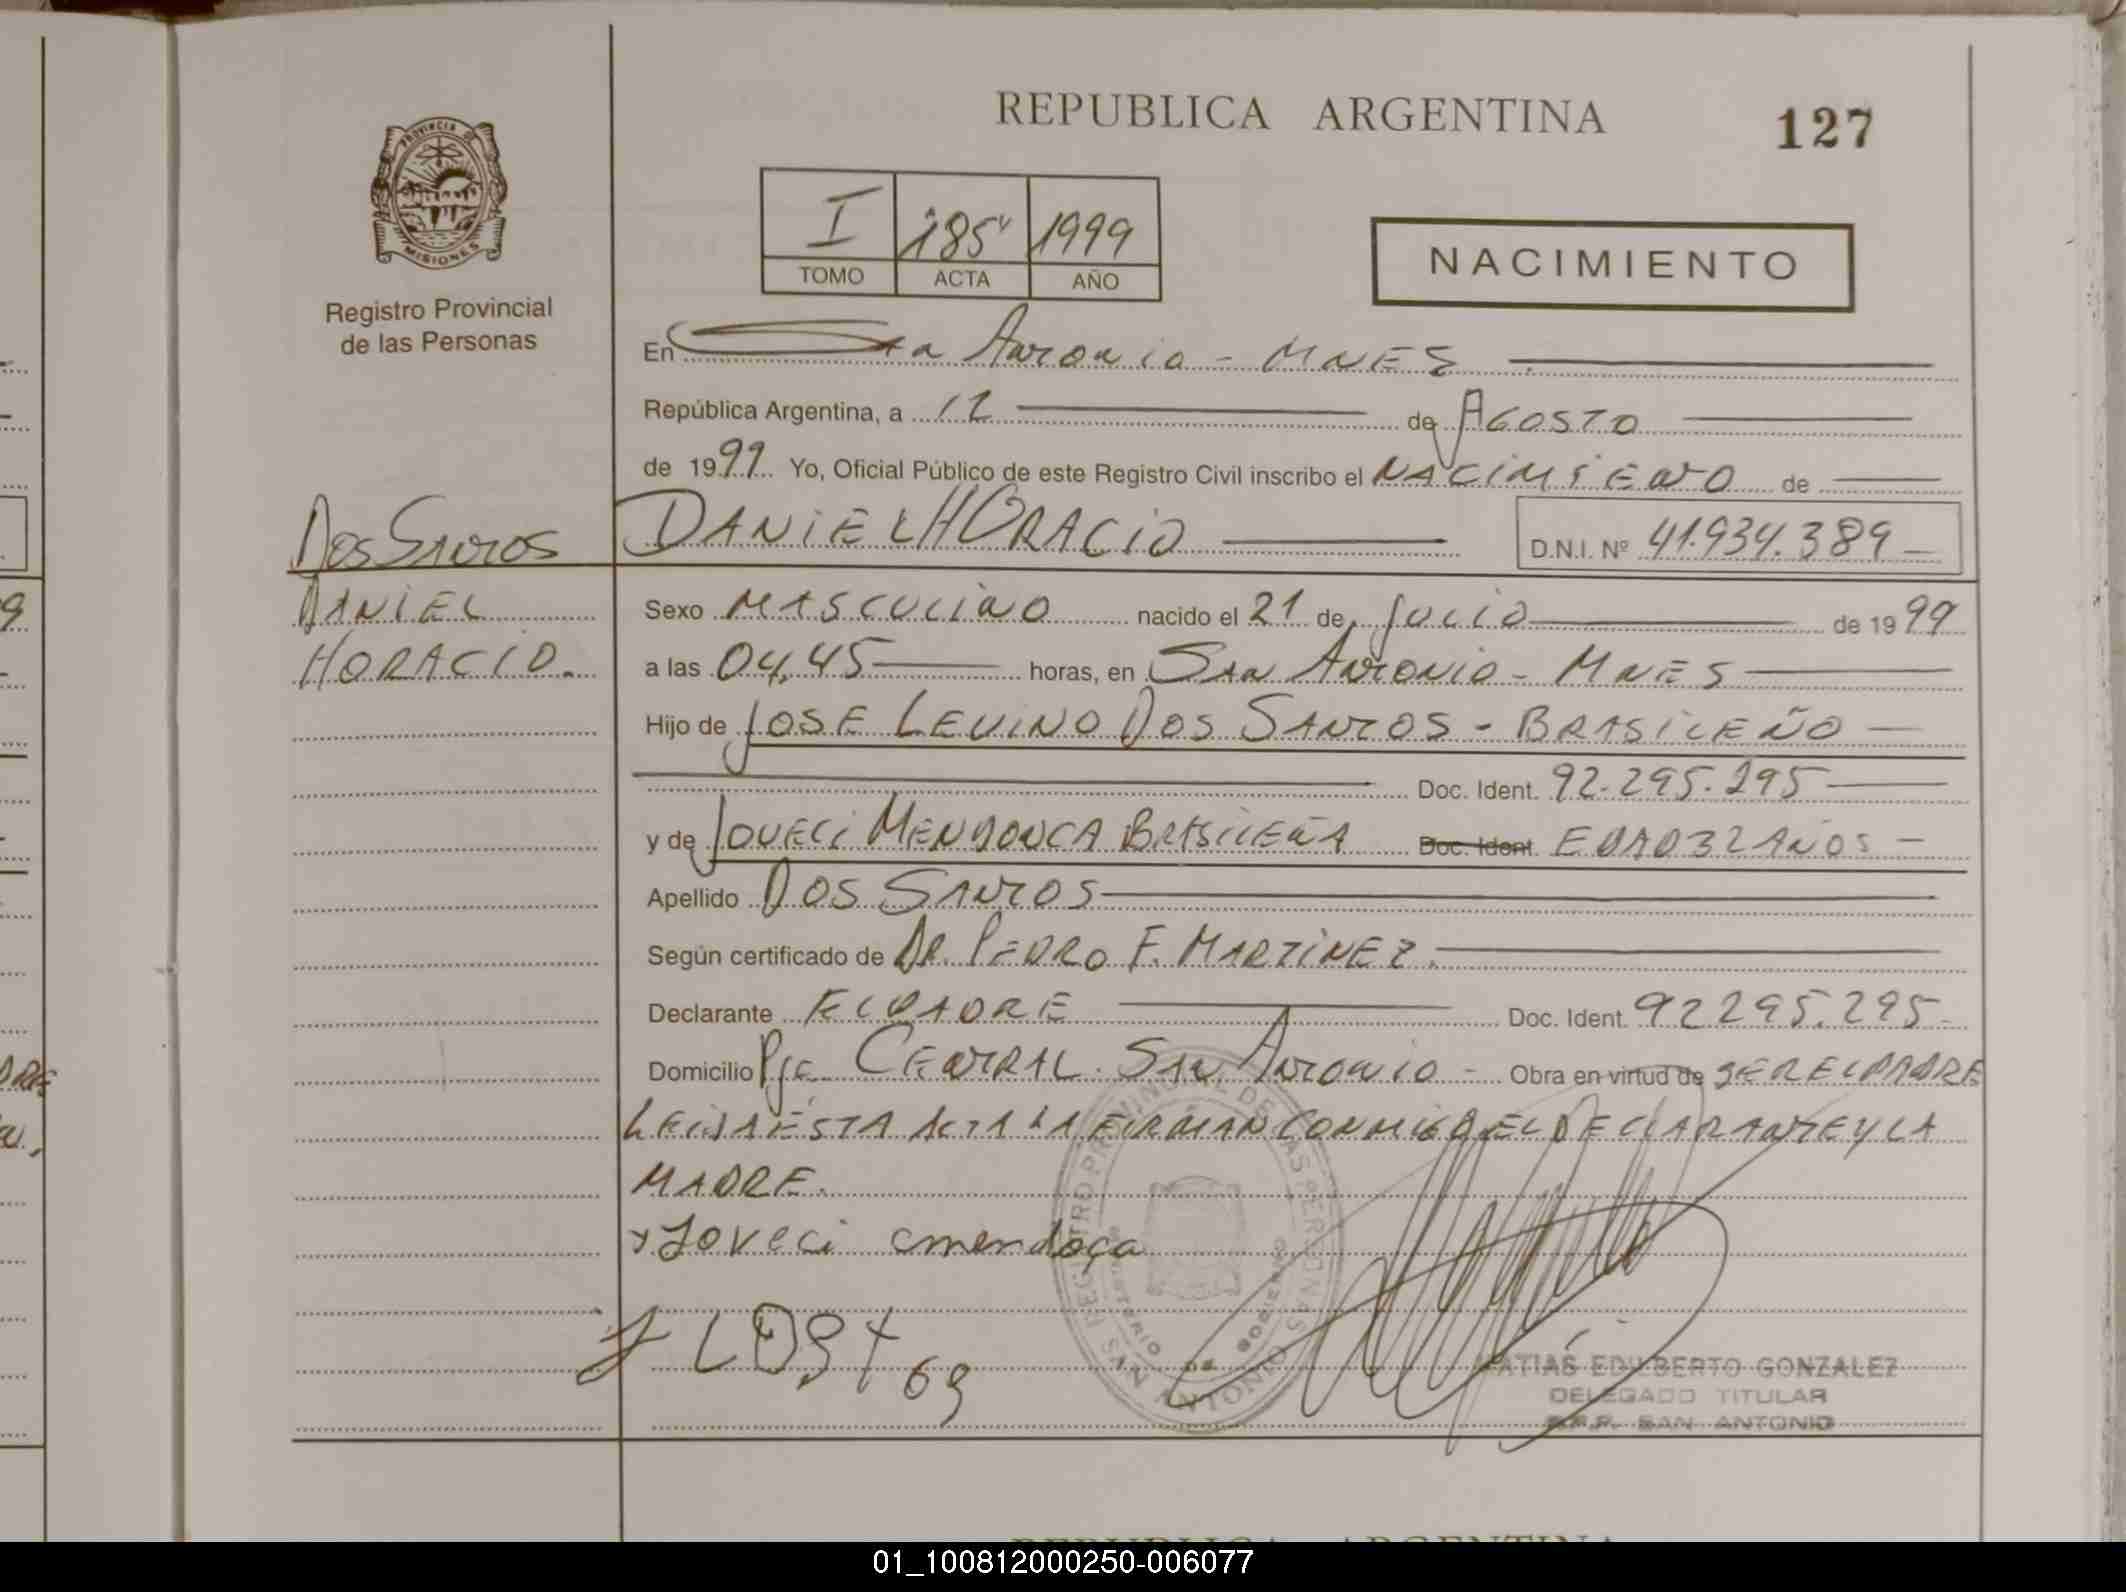 REPUBLICA ARGENTINA
127
PROVINCIA DE
MISIONES
Registro Provincial
de las Personas
I 185 1999
TOMO ACTA AÑO
NACIMIENTO
En San Antonio - MNES
República Argentina, a 12 de AGOSTO
de 1999 Yo, Oficial Público de este Registro Civil inscribo el NACIMIENTO de
DOS SANTOS DANIEL HORACIO D.N.I. Nº 41.934.389
DANIEL
HORACIO.
Sexo MASCULINO nacido el 21 de JULIO de 1999
a las 04,45 horas, en SAN ANTONIO - MNES
Hijo de JOSE LEVINO DOS SANTOS - BRASILEÑO
Doc. Ident. 92.295.295
y de JOVECI MENDONCA BRASILEÑA Doc. Ident. EDAD 32 AÑOS -
Apellido DOS SANTOS
Según certificado de DR. PEDRO F. MARTINEZ.
Declarante EL PADRE Doc. Ident. 92295.295-
Domicilio Pje CENTRAL. SAN ANTONIO - Obra en virtud de SER EL PADRE
LEIDA ESTA ACTA LA FIRMAN CONMIGO EL DECLARANTE Y LA
MADRE.
x Joveci cmendoça
REGISTRO PROVINCIAL DE LAS PERSONAS
MINISTERIO DE GOBIERNO
SAN ANTONIO
MATIAS EDILBERTO GONZALEZ
DELEGADO TITULAR
SAN ANTONIO
REPUBLICA ARGENTINA
01_100812000250-006077